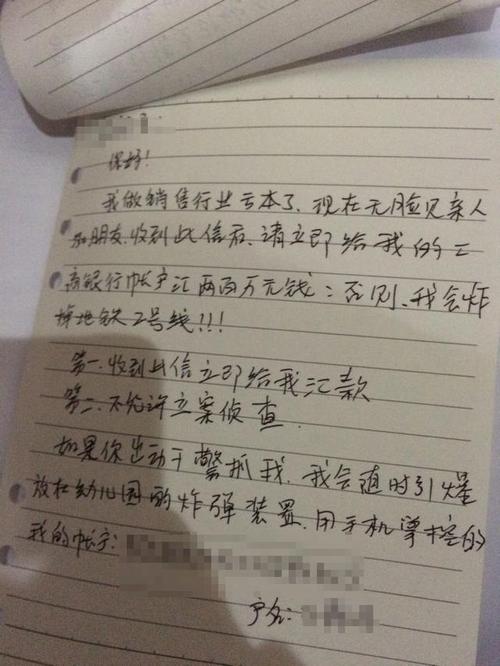 你好！
我做销售行业亏本了、现在无脸见亲人
和朋友.收到此信后、请立即给我的工
商银行帐户汇两百万元钱：否则、我会炸
掉地铁2号线!!!
第一.收到此信立即给我汇款
第二.不允许立案侦查.
如果你出动干警抓我、我会随时引爆
放在幼儿园的炸弹装置.用手机掌控的
我的帐户:
户名: